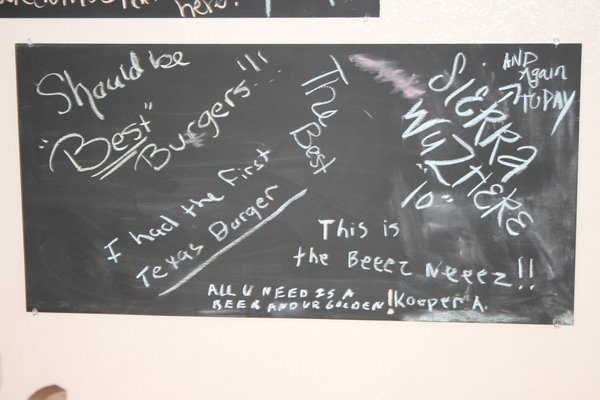 here!
Should be
"Best"
Burgers...!!!
The Best
SIERRA
WUZ HERE
10"
AND
Again
TODAY
I had the First
Texas Burger
This is
the Beeez Neeez!!
ALL U NEED IS A
BEER AND UR GOLDEN! Kooper A.